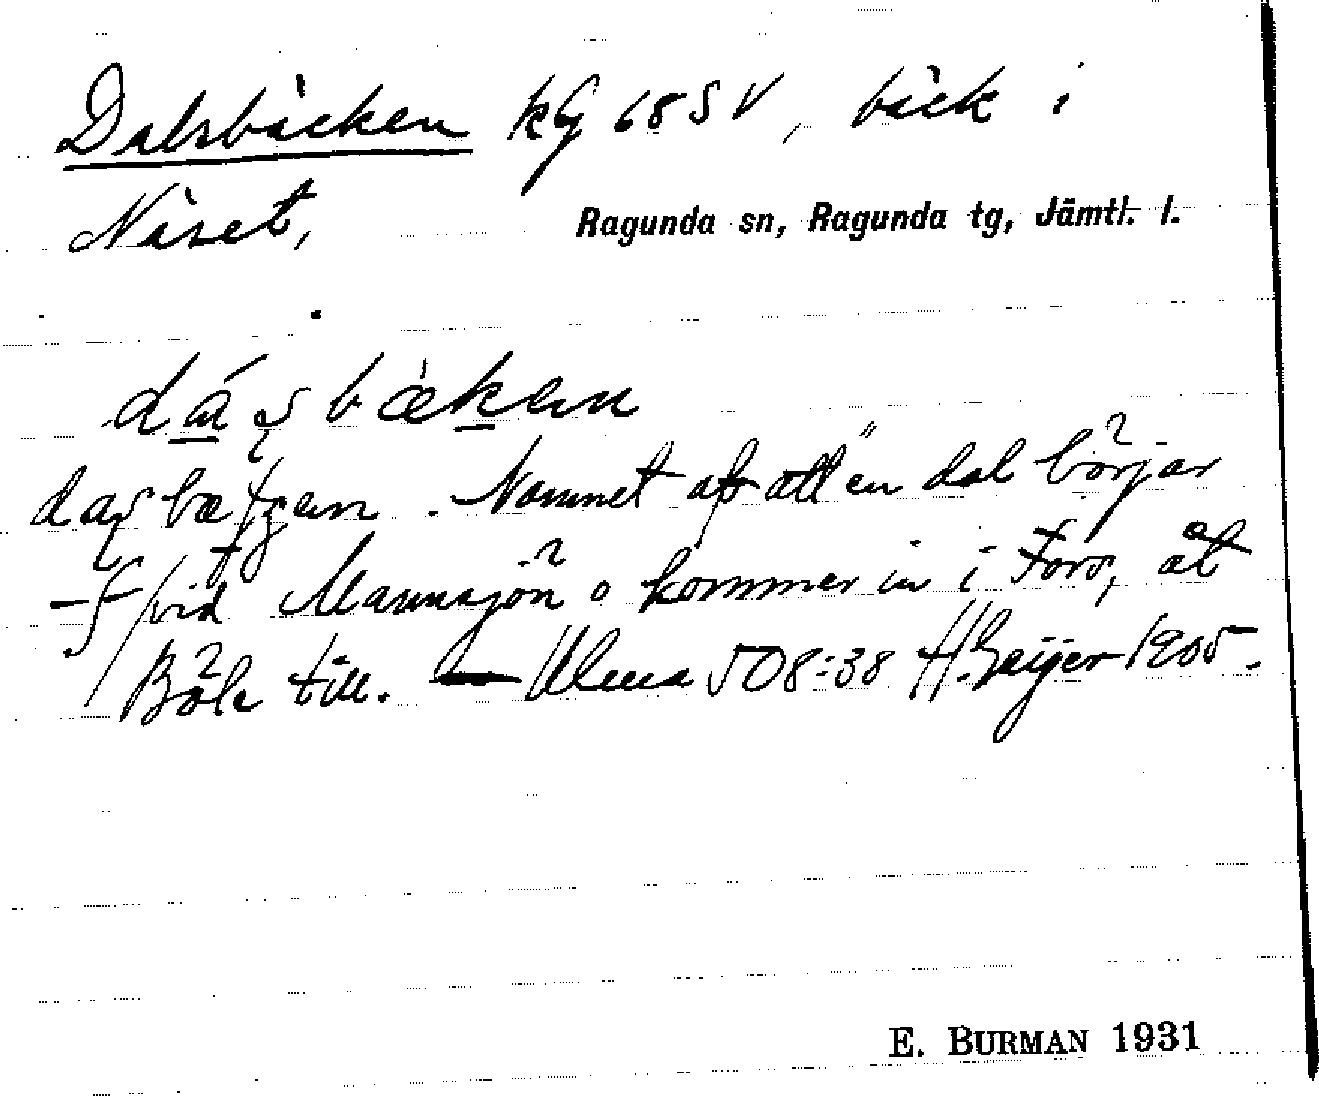 Dalsbäcken kG 68 SV, bäck i
Näset,
Ragunda sn, Ragunda tg, Jämtl. l.
Namnet af att en dal börjar
vid Mannsjön o kommer in i Fors, åt
Böle till. — Ulma 508:38 H. Geijer 1905.
E. BURMAN 1931